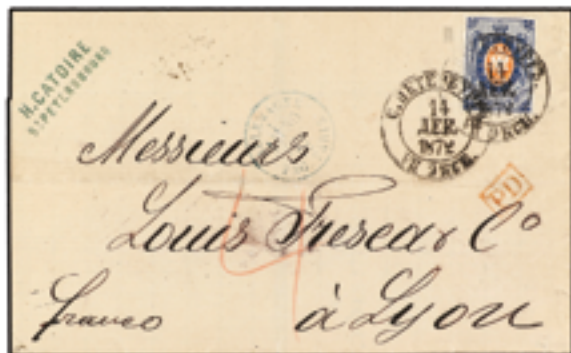 H. CATOIRE
ST PETERSBOURG
С. ПЕТЕРБУРГ
14
ДЕК.
1872
PD
Messieurs
Louis & Cº
franco
à Lyon